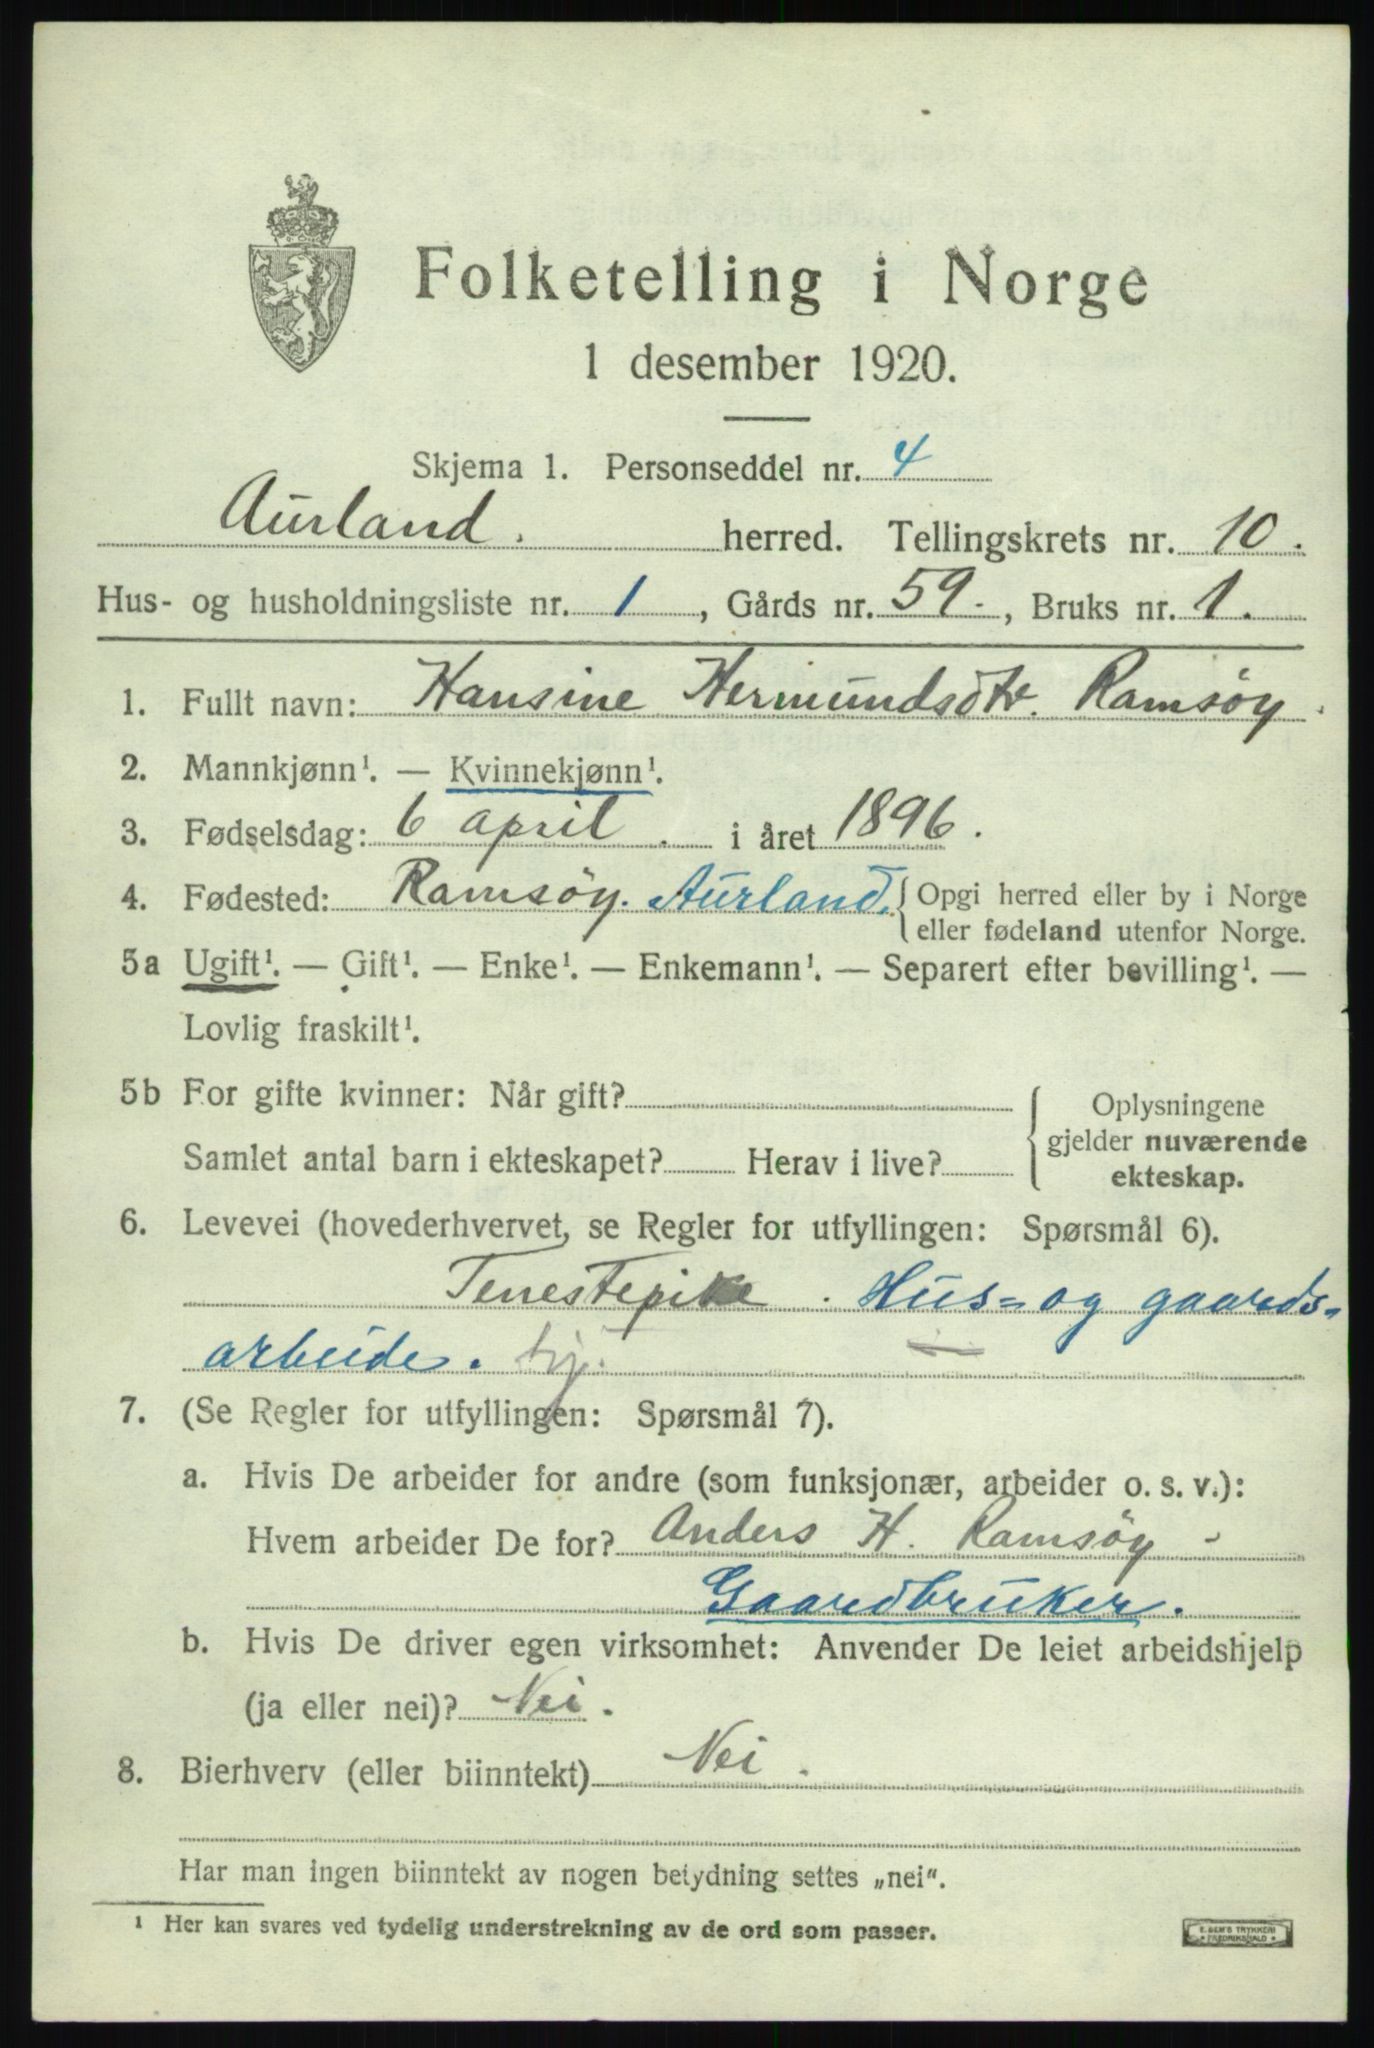 Folketelling i Norge
1 desember 1920.
Skjema 1. Personseddel nr. 4
Aurland. herred. Tellingskrets nr. 10.
Hus- og husholdningsliste nr. 1, Gårds nr. 59., Bruks nr. 1.
1. Fullt navn: Hansine Hermundsdtr. Ramsöy.
2. Mannkjønn¹. — Kvinnekjønn¹.
3. Fødselsdag: 6 april. i året 1896.
4. Fødested: Ramsöy. Aurland. { Opgi herred eller by i Norge
eller fødeland utenfor Norge.
5a Ugift¹. — Gift¹. — Enke¹. — Enkemann¹. — Separert efter bevilling¹. —
Lovlig fraskilt¹.
5b For gifte kvinner: Når gift?
Samlet antal barn i ekteskapet? Herav i live?
Oplysningene
gjelder nuværende
ekteskap.
6. Levevei (hovederhvervet, se Regler for utfyllingen: Spørsmål 6).
Tenestepike. Hus- og gaards-
arbeide.
7. (Se Regler for utfyllingen: Spørsmål 7).
a. Hvis De arbeider for andre (som funksjonær, arbeider o. s. v.):
Hvem arbeider De for? Anders H. Ramsöy -
Gaardbruker.
b. Hvis De driver egen virksomhet: Anvender De leiet arbeidshjelp
(ja eller nei)? Nei.
8. Bierhverv (eller biinntekt) Nei.
Har man ingen biinntekt av nogen betydning settes „nei".
¹ Her kan svares ved tydelig understrekning av de ord som passer.
E. SEM'S TRYKKERI
FREDRIKSHALD